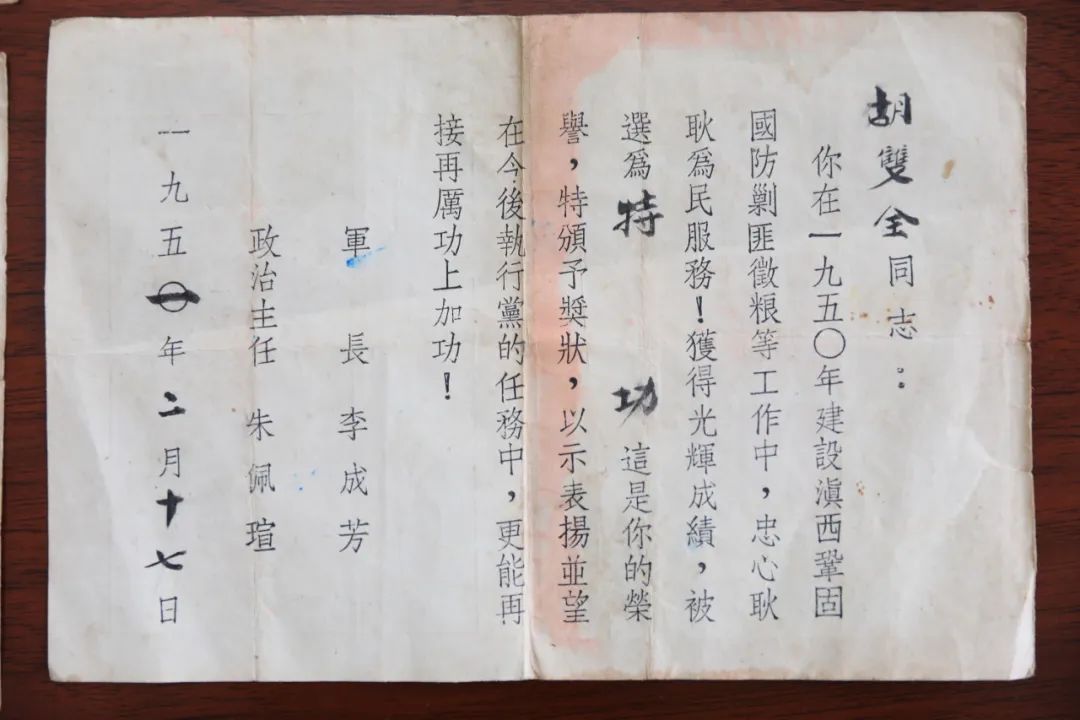 胡雙全同志：
你在一九五〇年建設滇西鞏固
國防剿匪徵粮等工作中，忠心耿
耿為民服務！獲得光輝成績，被
選為特功這是你的榮
譽，特頒予獎狀，以示表揚並望
在今後執行黨的任務中，更能再
接再厲功上加功！
軍長 李成芳
政治主任 朱佩瑄
一九五一年二月十七日